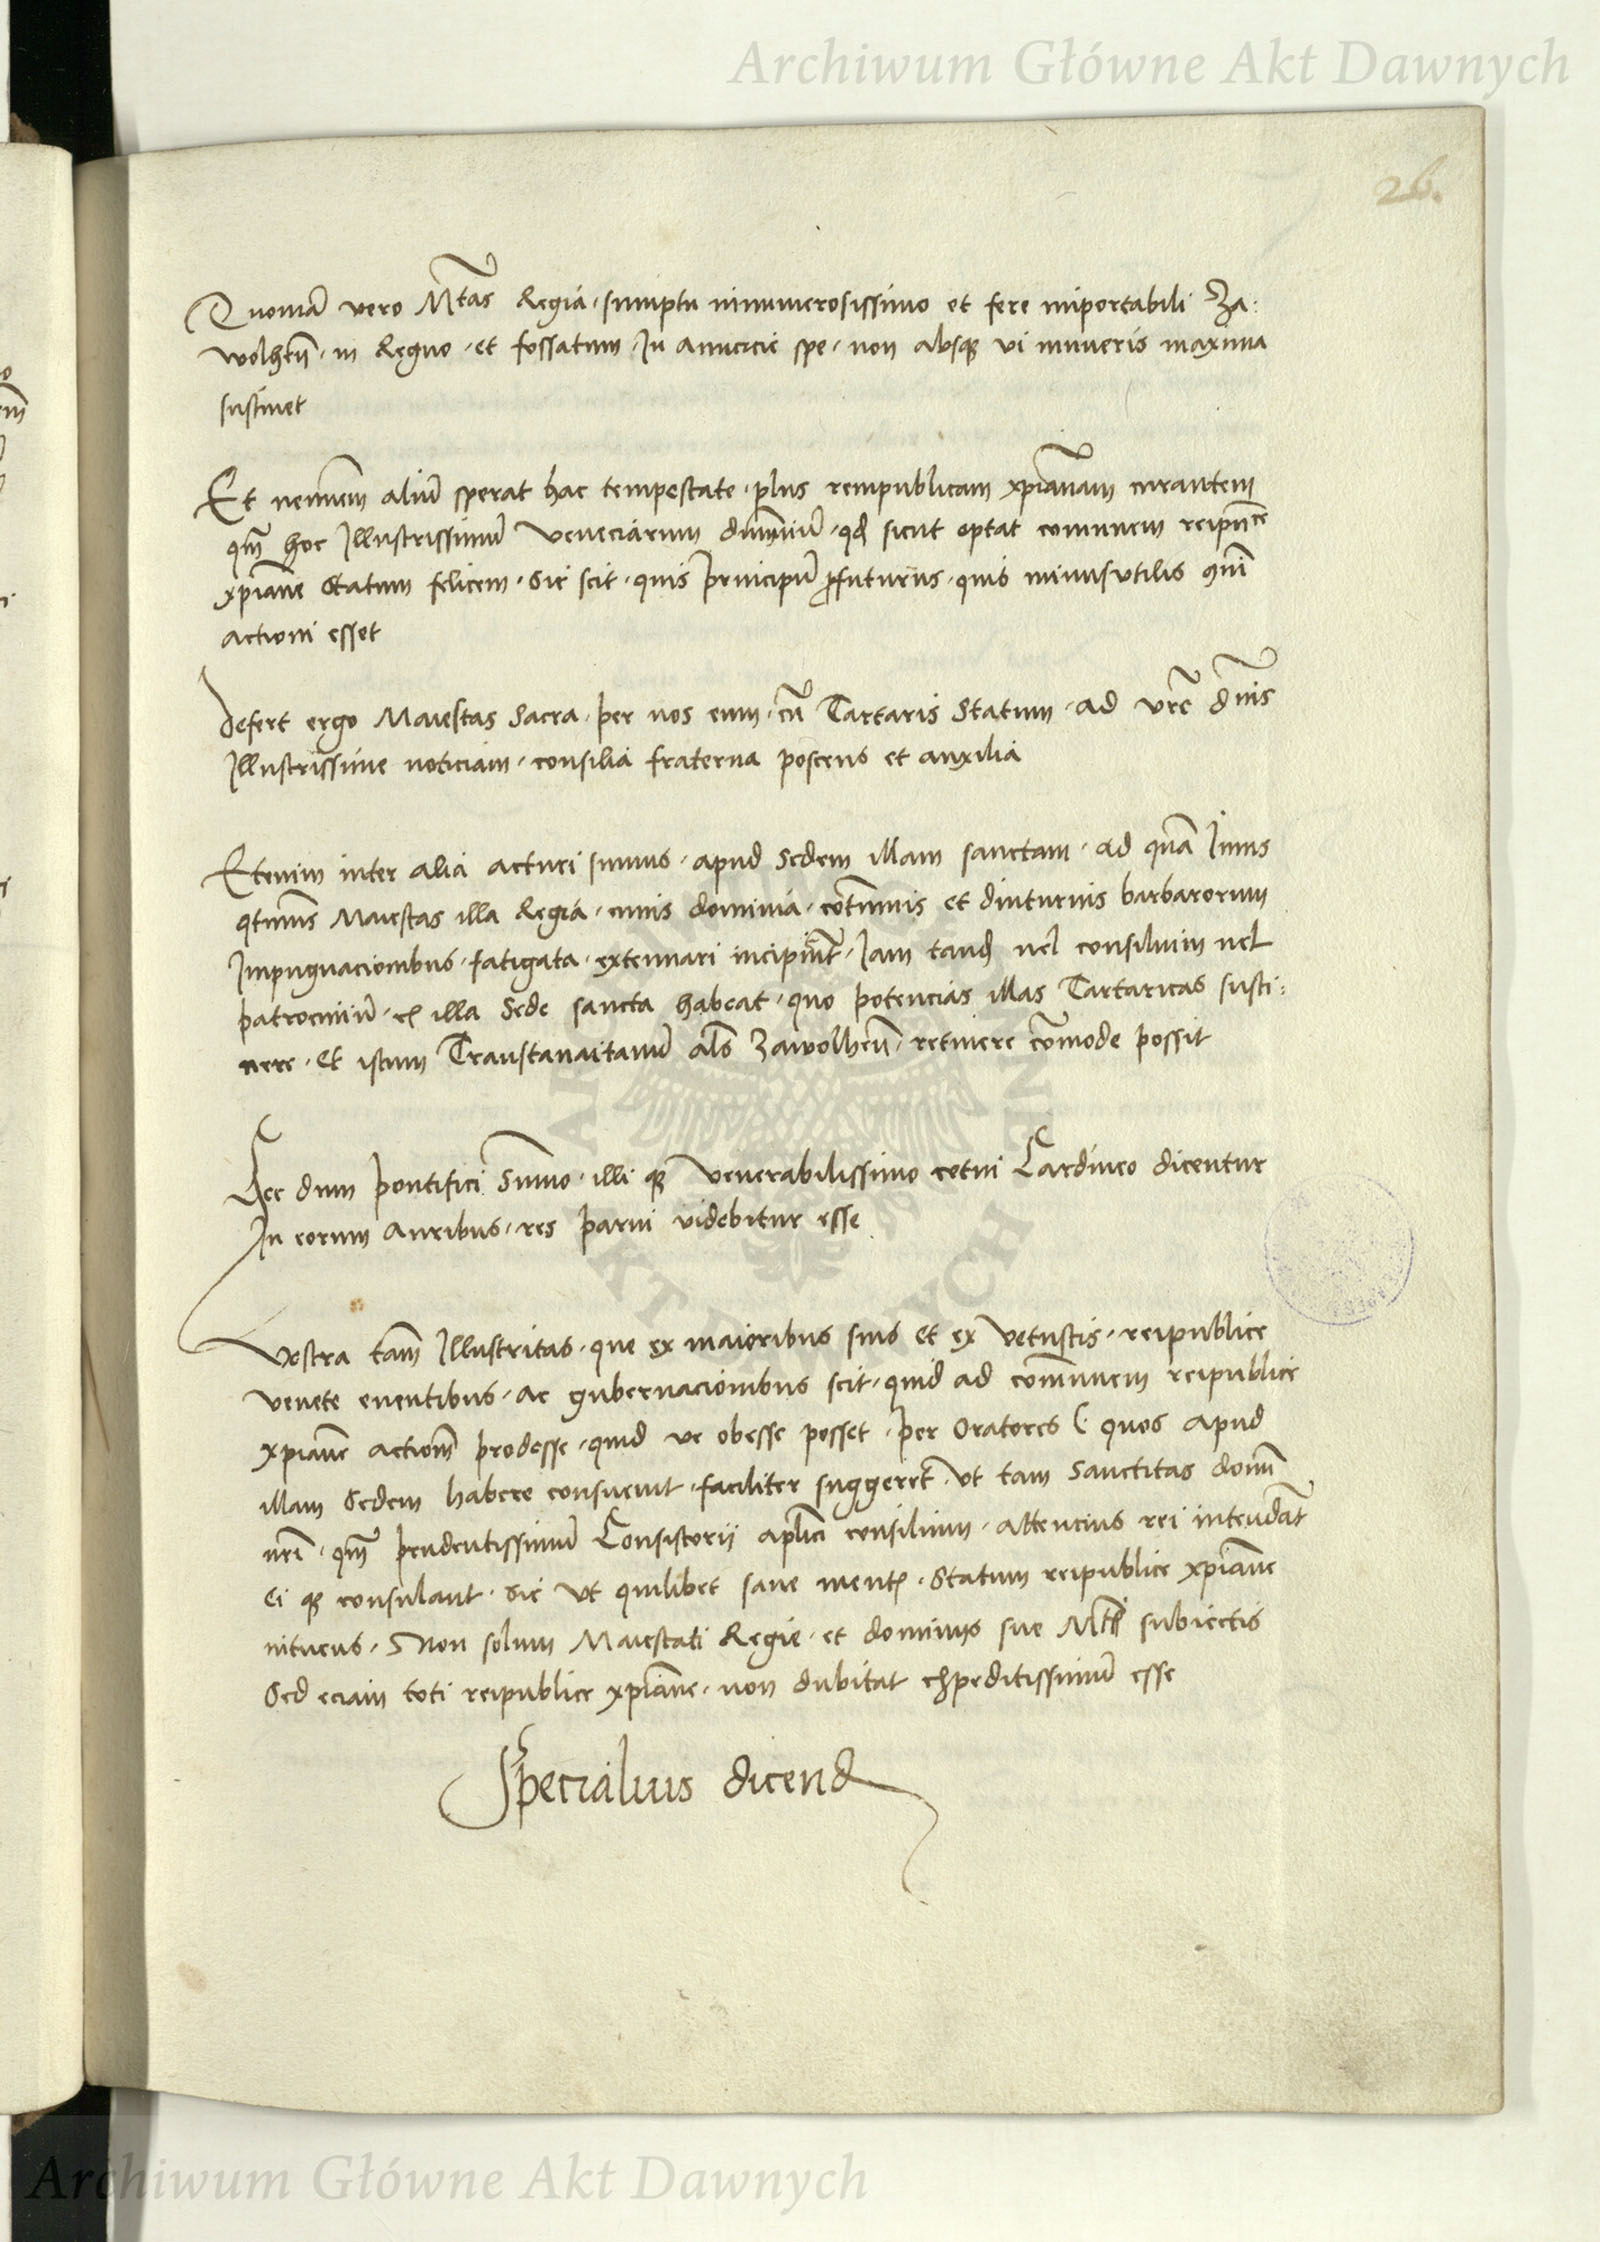 Archiwum Główne Akt Dawnych
26.
Quoniā vero Mtas Regia · sumptu innumerosissimo et fere importabili Za:
wolhen̄ · in Regno · et fossatum · In amicicie spe · non absqꝫ vi muneris maxima
sustinet
Et neminem aliū sperat hac tempestate · plus rempublicam xp̄ianam curantem
qm̄ hoc Illustrissimū Veneciarum dominiū · qd sicut optat comunem reipu͞ce
xp̄iane Statum felicem · Sic scit · quis principū profuturus · quis minusvtilis
actioni esset
Defert ergo Maiestas Sacra · per nos eum · cū Tartaris Statum · ad vr̄e d̄nis
Illustrissime noticiam · consilia fraterna poscens et auxilia
Etenim inter alia acturi sumus · apud Sedem illam sanctam · ad quā Imus
qtinus Maiestas illa Regia · cuius dominia · cōtinuis et diuturnis barbarorum
Impugnacionibus · fatigata · extenuari incipiūt · Iam tandē uel consilium uel
patrociniū · ex illa Sede sancta habeat · quo potencias illas Tartaricas susti:
nere · Et istum Transtanaitanū als Zawolhen̄ · retinere cōmode possit
Hec dum pontifici Sūmo · illi qꝫ Venerabilissimo cetui Cardineo dicentur
In eorum Auribus · res parui videbitur esse
Vestra tam̄ Illustritas · que ex maioribus suis et ex Vetustis · reipublice
venete euentibus · ac gubernacionibus scit · quid ad comunem reipublice
xp̄iane actionē prodesse · quid ve obesse posset · per Oratores (· quos apud
illam Sedem habere consueuit · faciliter suggeret · Vt tam Sanctitas domi
nr̄i · qm̄ prudentissimū Consistorii ap̄lici consilium · attencius rei intendāt
Ei qꝫ consulant · Sic Vt quilibet sane mentis · Statum reipublice xp̄iane
intuens · Non solum Maiestati Regie · et dominiis sue Mti subiectis
Sed eciam toti reipublice xp̄iane · non dubitat expeditissimū esse
Specialius dicend
Archiwum Główne Akt Dawnych